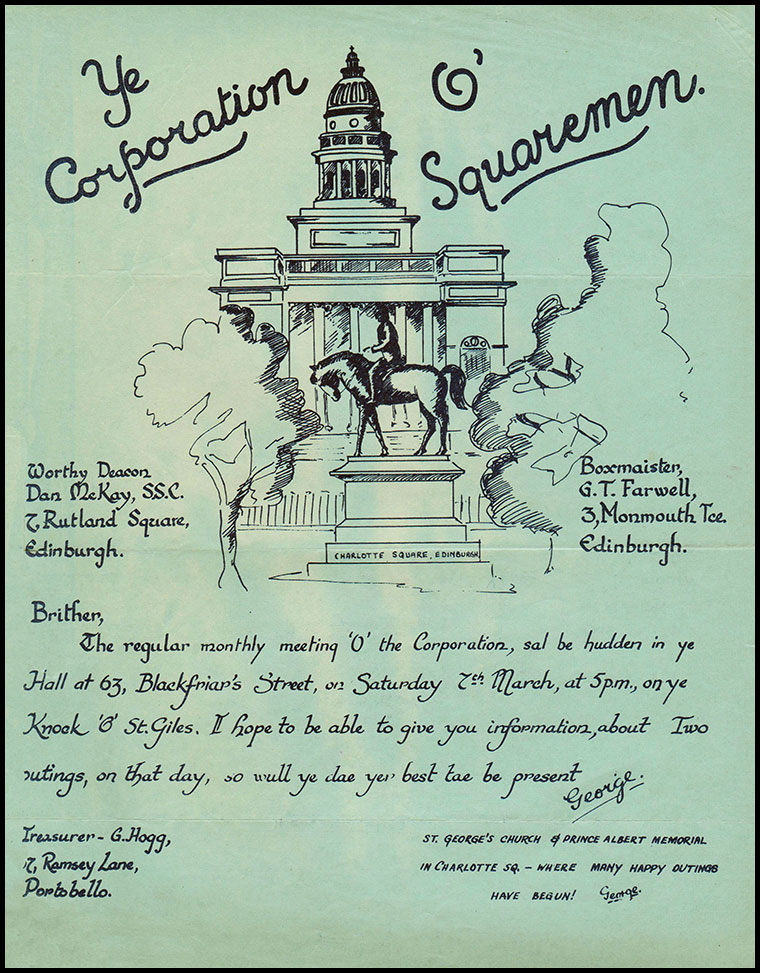 Ye
Corporation
O'
Squaremen.
Worthy Deacon
Dan McKay, S.S.C.
7, Rutland Square,
Edinburgh.
Boxmaister,
G.T. Farwell,
3, Monmouth Tce.
Edinburgh.
CHARLOTTE SQUARE, EDINBURGH
Brither,
The regular monthly meeting 'O' the Corporation, sal be hudden in ye
Hall at 63, Blackfriar's Street, on Saturday 7th March, at 5p.m., on ye
Knock 'O' St. Giles. I hope to be able to give you information, about Two
outings, on that day, so wull ye dae yer best tae be present
George.
Treasurer - G. Hogg,
7, Ramsey Lane,
Portobello.
ST. GEORGE'S CHURCH & PRINCE ALBERT MEMORIAL
IN CHARLOTTE SQ. - WHERE MANY HAPPY OUTINGS
HAVE BEGUN! George.